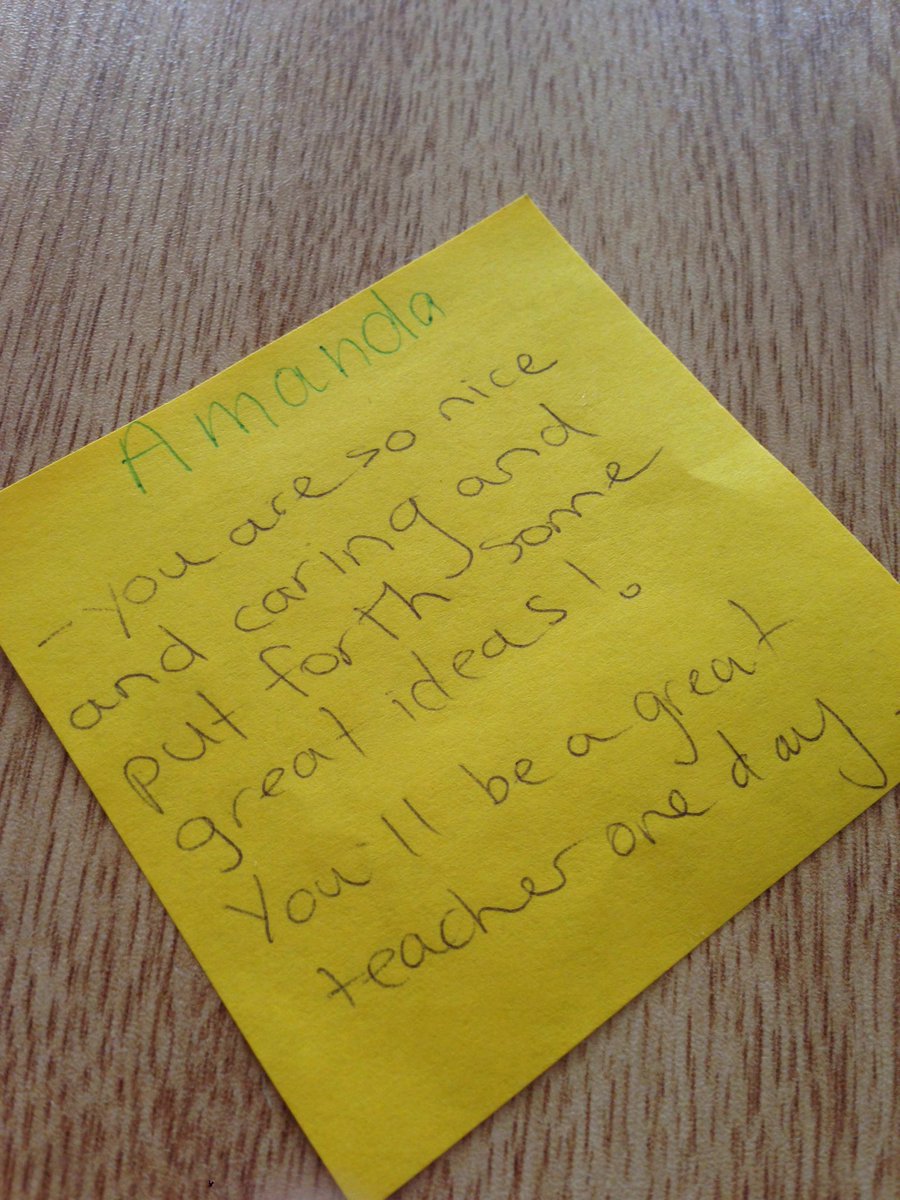 Amanda
- you are so nice
and caring and
put forth some
great ideas!
You'll be a great
teacher one day.